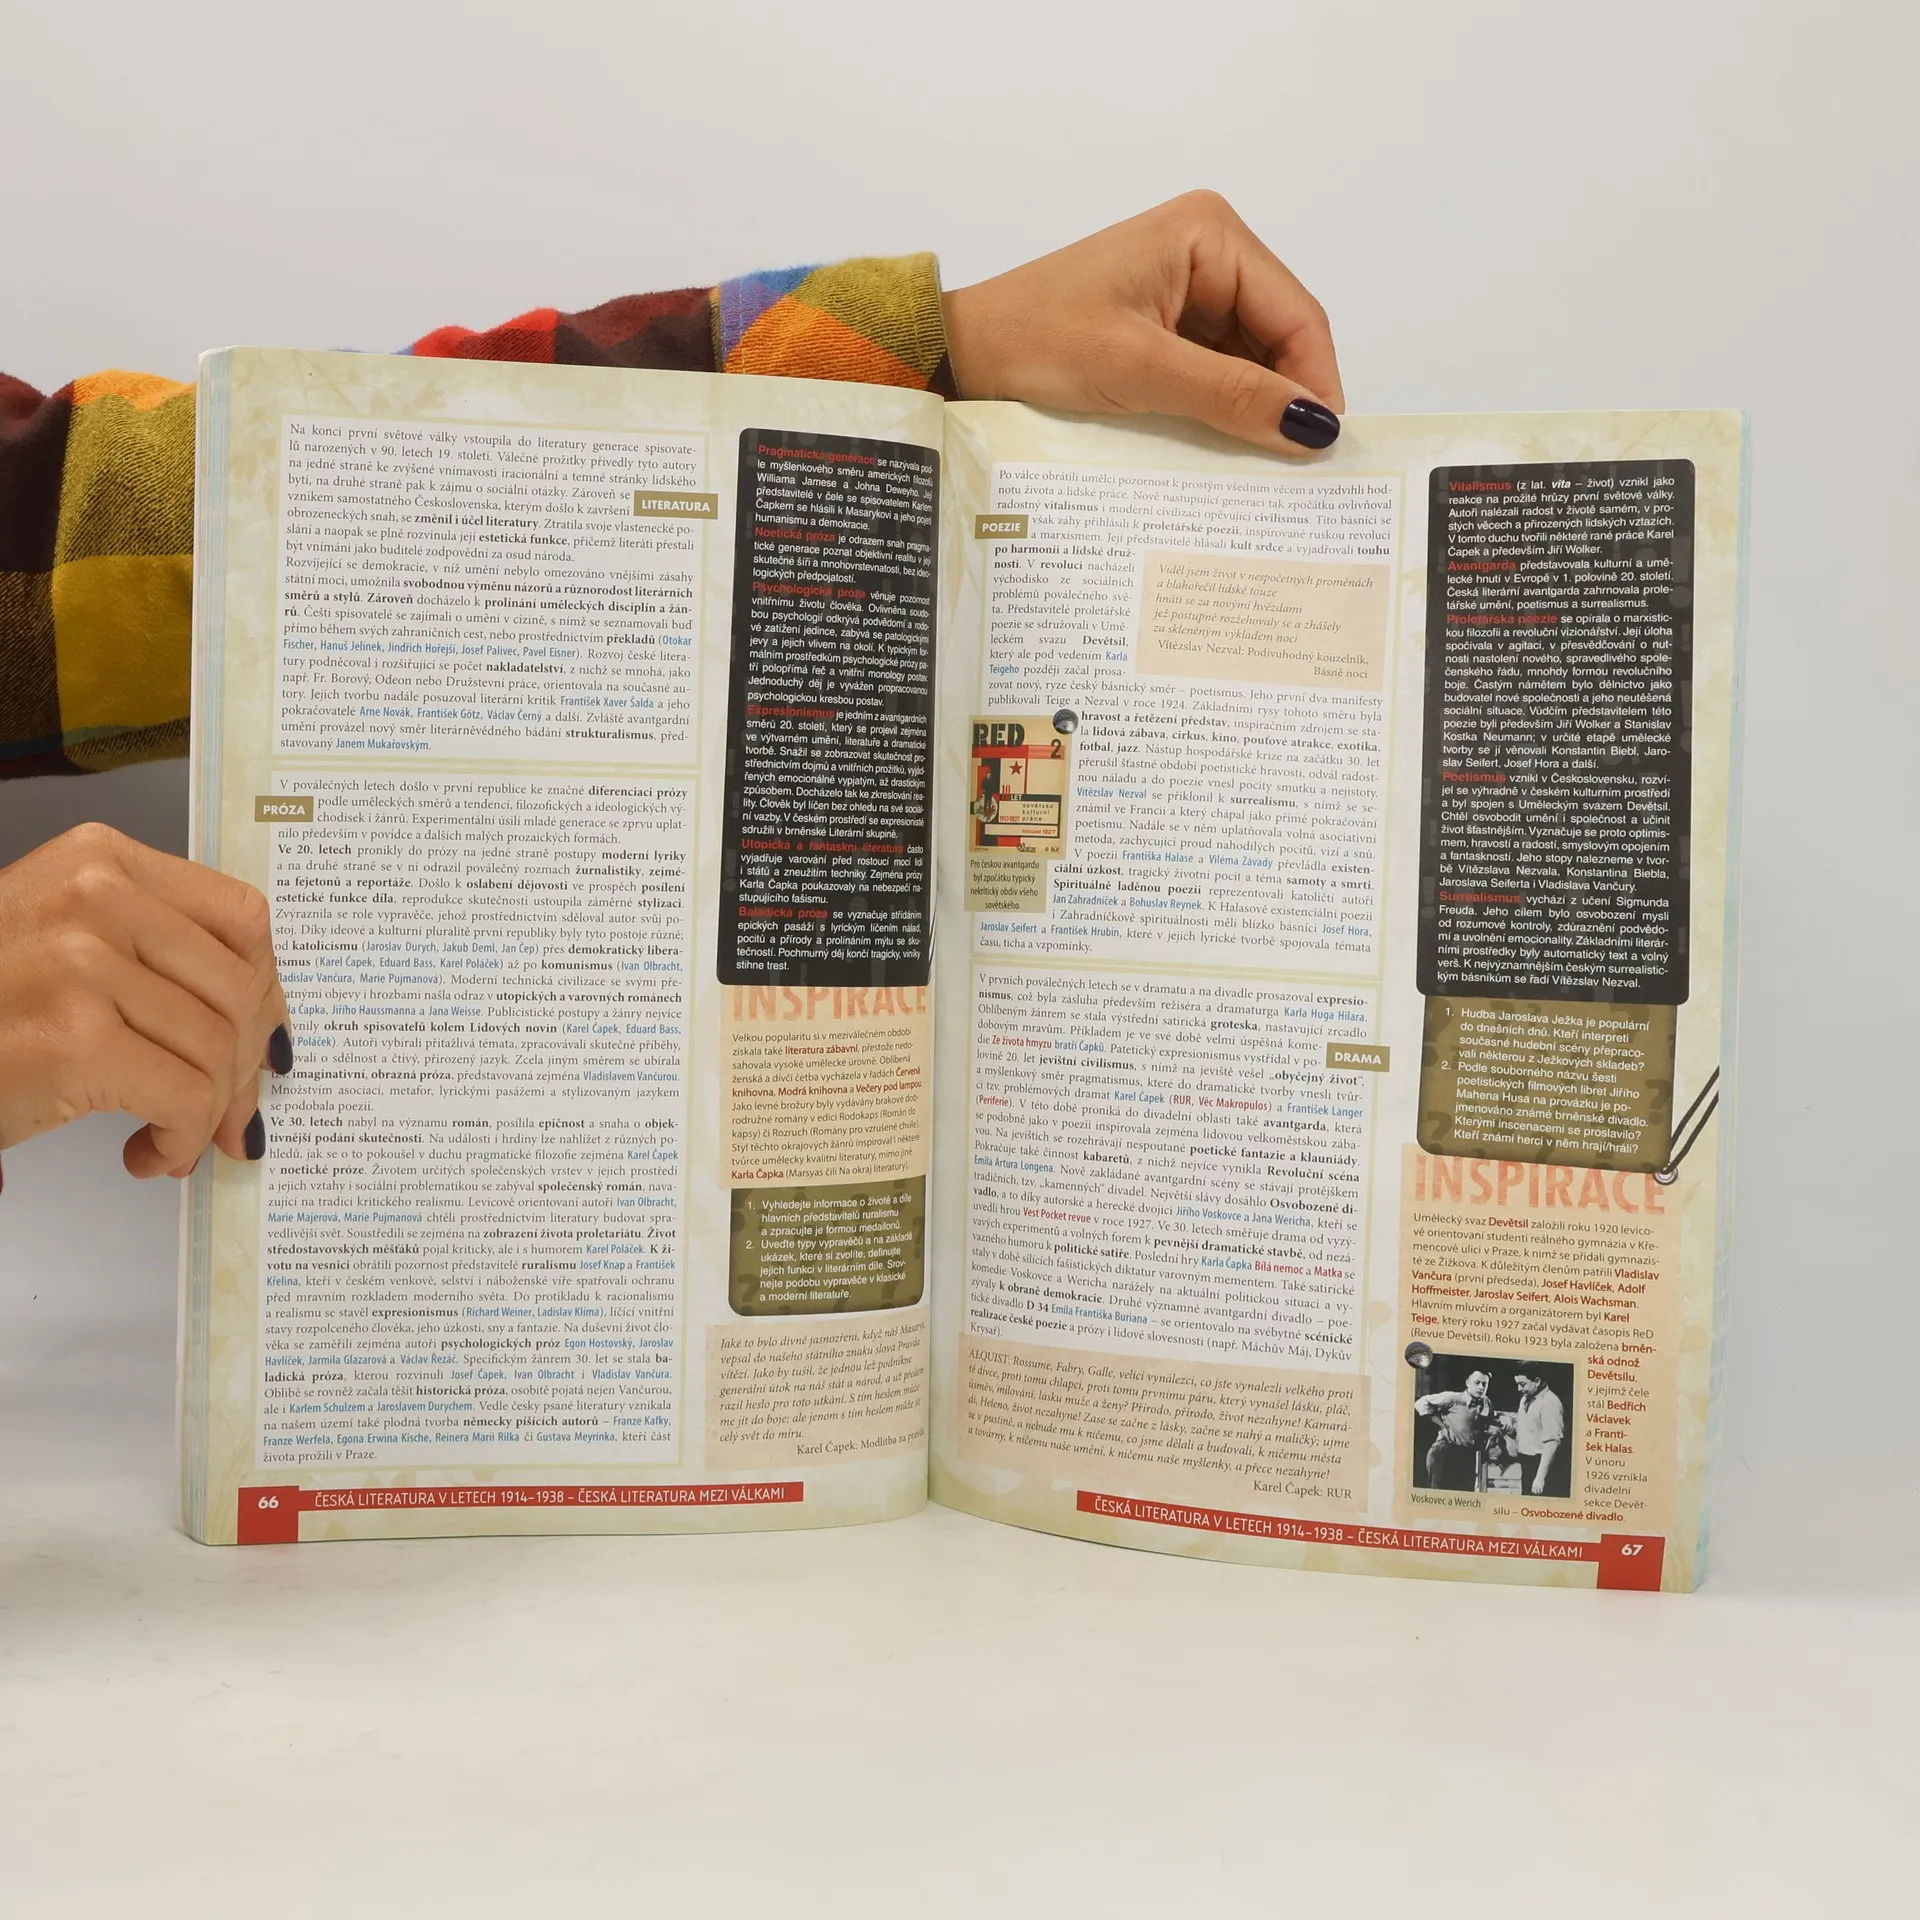 Na konci první světové války vstoupila do literatury generace spisovate-
lů narozených v 90. letech 19. století. Válečné prožitky přivedly tyto autory
na jedné straně ke zvýšené vnímavosti iracionální a temné stránky lidského
bytí, na druhé straně pak k zájmu o sociální otázky. Zároveň se
LITERATURA
vznikem samostatného Československa, kterým došlo k završení
obrozeneckých snah, se změnil i účel literatury. Ztratila svoje vlastenecké po-
slání a naopak se plně rozvinula její estetická funkce, přičemž literáti přestali
být vnímáni jako buditelé zodpovědní za osud národa.
Rozvíjející se demokracie, v níž umění nebylo omezováno vnějšími zásahy
státní moci, umožnila svobodnou výměnu názorů a různorodost literárních
směrů a stylů. Zároveň docházelo k prolínání uměleckých disciplín a žán-
rů. Čeští spisovatelé se zajímali o umění v cizině, s nímž se seznamovali buď
přímo během svých zahraničních cest, nebo prostřednictvím překladů (Otokar
Fischer, Hanuš Jelínek, Jindřich Hořejší, Josef Palivec, Pavel Eisner). Rozvoj české litera-
tury podněcoval i rozšiřující se počet nakladatelství, z nichž se mnohá, jako
např. Fr. Borový, Odeon nebo Družstevní práce, orientovala na současné au-
tory. Jejich tvorbu nadále posuzoval literární kritik František Xaver Šalda a jeho
pokračovatelé Arne Novák, František Götz, Václav Černý a další. Zvláště avantgardní
umění provázel nový směr literárněvědného bádání strukturalismus, před-
stavovaný Janem Mukařovským.
V poválečných letech došlo v první republice ke značné diferenciaci prózy
PRÓZA
podle uměleckých směrů a tendencí, filozofických a ideologických vý-
chodisek i žánrů. Experimentální úsilí mladé generace se zprvu uplat-
nilo především v povídce a dalších malých prozaických formách.
Ve 20. letech pronikly do prózy na jedné straně postupy moderní lyriky
a na druhé straně se v ní odrazil poválečný rozmach žurnalistiky, zejmé-
na fejetonů a reportáže. Došlo k oslabení dějovosti ve prospěch posílení
estetické funkce díla, reprodukce skutečnosti ustoupila záměrné stylizaci.
Zvýraznila se role vypravěče, jehož prostřednictvím sděloval autor svůj po-
stoj. Díky ideové a kulturní pluralitě první republiky byly tyto postoje různé;
od katolicismu (Jaroslav Durych, Jakub Deml, Jan Čep) přes demokratický libera-
lismus (Karel Čapek, Eduard Bass, Karel Poláček) až po komunismus (Ivan Olbracht,
Vladislav Vančura, Marie Pujmanová). Moderní technická civilizace se svými pře-
vratnými objevy i hrozbami našla odraz v utopických a varovných románech
Čapka, Jiřího Haussmanna a Jana Weisse. Publicistické postupy a žánry nejvíce
okruh spisovatelů kolem Lidových novin (Karel Čapek, Eduard Bass,
Poláček). Autoři vybírali přitažlivá témata, zpracovávali skutečné příběhy,
o sdělnost a čtivý, přirozený jazyk. Zcela jiným směrem se ubírala
tzv. imaginativní, obrazná próza, představovaná zejména Vladislavem Vančurou.
Množstvím asociací, metafor, lyrickými pasážemi a stylizovaným jazykem
se podobala poezii.
Ve 30. letech nabyl na významu román, posílila epičnost a snaha o objek-
tivnější podání skutečnosti. Na události i hrdiny lze nahlížet z různých po-
hledů, jak se o to pokoušel v duchu pragmatické filozofie zejména Karel Čapek
v noetické próze. Životem určitých společenských vrstev v jejich prostředí
a jejich vztahy i sociální problematikou se zabýval společenský román, nava-
zující na tradici kritického realismu. Levicově orientovaní autoři Ivan Olbracht,
Marie Majerová, Marie Pujmanová chtěli prostřednictvím literatury budovat spra-
vedlivější svět. Soustředili se zejména na zobrazení života proletariátu. Život
středostavovských měšťáků pojal kriticky, ale i s humorem Karel Poláček. K ži-
votu na vesnici obrátili pozornost představitelé ruralismu Josef Knap a František
Křelina, kteří v českém venkově, selství i náboženské víře spatřovali ochranu
před mravním rozkladem moderního světa. Do protikladu k racionalismu
a realismu se stavěl expresionismus (Richard Weiner, Ladislav Klíma), líčící vnitřní
stavy rozpolceného člověka, jeho úzkosti, sny a fantazie. Na duševní život člo-
věka se zaměřili zejména autoři psychologických próz Egon Hostovský, Jaroslav
Havlíček, Jarmila Glazarová a Václav Řezáč. Specifickým žánrem 30. let se stala ba-
ladická próza, kterou rozvinuli Josef Čapek, Ivan Olbracht i Vladislav Vančura.
Oblibě se rovněž začala těšit historická próza, osobitě pojatá nejen Vančurou,
ale i Karlem Schulzem a Jaroslavem Durychem. Vedle česky psané literatury vznikala
na našem území také plodná tvorba německy píšících autorů – Franze Kafky,
Franze Werfela, Egona Erwina Kische, Reinera Marii Rilka či Gustava Meyrinka, kteří část
života prožili v Praze.
Pragmatická generace se nazývala pod-
le myšlenkového směru amerických filozofů
Williama Jamese a Johna Deweyho. Její
představitelé v čele se spisovatelem Karlem
Čapkem se hlásili k Masarykovi a jeho pojetí
humanismu a demokracie.
Noetická próza je odrazem snah pragma-
tické generace poznat objektivní realitu v její
skutečné šíři a mnohovrstevnatosti, bez ideo-
logických předpojatostí.
Psychologická próza věnuje pozornost
vnitřnímu životu člověka. Ovlivněna soudo-
bou psychologií odkrývá podvědomí a rodo-
vé zatížení jedince, zabývá se patologickými
jevy a jejich vlivem na okolí. K typickým for-
málním prostředkům psychologické prózy pa-
tří polopřímá řeč a vnitřní monology postav.
Jednoduchý děj je vyvážen propracovanou
psychologickou kresbou postav.
Expresionismus je jedním z avantgardních
směrů 20. století, který se projevil zejména
ve výtvarném umění, literatuře a dramatické
tvorbě. Snažil se zobrazovat skutečnost pro-
střednictvím dojmů a vnitřních prožitků, vyjád-
řených emocionálně vypjatým, až drastickým
způsobem. Docházelo tak ke zkreslování rea-
lity. Člověk byl líčen bez ohledu na své sociál-
ní vazby. V českém prostředí se expresionisté
sdružili v brněnské Literární skupině.
Utopická a fantaskní literatura často
vyjadřuje varování před rostoucí mocí lidí
i států a zneužitím techniky. Zejména prózy
Karla Čapka poukazovaly na nebezpečí na-
stupujícího fašismu.
Baladická próza se vyznačuje střídáním
epických pasáží s lyrickým líčením nálad,
pocitů a přírody a prolínáním mýtu se sku-
tečností. Pochmurný děj končí tragicky, viníky
stihne trest.
INSPIRACE
Velkou popularitu si v meziválečném období
získala také literatura zábavní, přestože nedo-
sahovala vysoké umělecké úrovně. Oblíbená
ženská a dívčí četba vycházela v řadách Červená
knihovna, Modrá knihovna a Večery pod lampou.
Jako levné brožury byly vydávány brakové dob-
rodružné romány v edici Rodokaps (Román do
kapsy) či Rozruch (Romány pro vzrušené chvíle).
Styl těchto okrajových žánrů inspiroval i některé
tvůrce umělecky kvalitní literatury, mimo jiné
Karla Čapka (Marsyas čili Na okraj literatury).
1. Vyhledejte informace o životě a díle
hlavních představitelů ruralismu
a zpracujte je formou medailonů.
2. Uveďte typy vypravěčů a na základě
ukázek, které si zvolíte, definujte
jejich funkci v literárním díle. Srov-
nejte podobu vypravěče v klasické
a moderní literatuře.
Jaké to bylo divné jasnozření, když náš Masaryk
vepsal do našeho státního znaku slova Pravda
vítězí. Jako by tušil, že jednou lež podnikne
generální útok na náš stát a národ, a už předem
razil heslo pro toto utkání. S tím heslem může-
me jít do boje; ale jenom s tím heslem může jít
celý svět do míru.
Karel Čapek: Modlitba za pravdu
66 ČESKÁ LITERATURA V LETECH 1914–1938 – ČESKÁ LITERATURA MEZI VÁLKAMI
Po válce obrátili umělci pozornost k prostým všedním věcem a vyzdvihli hod-
notu života a lidské práce. Nově nastupující generaci tak zpočátku ovlivňoval
radostný vitalismus i moderní civilizaci opěvující civilismus. Tito básníci se
POEZIE
však záhy přihlásili k proletářské poezii, inspirované ruskou revolucí
a marxismem. Její představitelé hlásali kult srdce a vyjadřovali touhu
po harmonii a lidské druž-
nosti. V revoluci nacházeli
východisko ze sociálních
problémů poválečného svě-
ta. Představitelé proletářské
poezie se sdružovali v Umě-
leckém svazu Devětsil,
který ale pod vedením Karla
Teigeho později začal prosa-
Viděl jsem život v nespočetných proměnách
a blahořečil lidské touze
hnáti se za novými hvězdami
jež postupně rozžehovaly se a zhášely
za skleněným výkladem noci
Vítězslav Nezval: Podivuhodný kouzelník,
Básně noci
zovat nový, ryze český básnický směr – poetismus. Jeho první dva manifesty
publikovali Teige a Nezval v roce 1924. Základními rysy tohoto směru byla
hravost a řetězení představ, inspiračním zdrojem se sta-
la lidová zábava, cirkus, kino, pouťové atrakce, exotika,
fotbal, jazz. Nástup hospodářské krize na začátku 30. let
přerušil šťastné období poetistické hravosti, odvál radost-
nou náladu a do poezie vnesl pocity smutku a nejistoty.
Vítězslav Nezval se přiklonil k surrealismu, s nímž se se-
známil ve Francii a který chápal jako přímé pokračování
poetismu. Nadále se v něm uplatňovala volná asociativní
metoda, zachycující proud nahodilých pocitů, vizí a snů.
V poezii Františka Halase a Viléma Závady převládla existen-
ciální úzkost, tragický životní pocit a téma samoty a smrti.
Spirituálně laděnou poezii reprezentovali katoličtí autoři
Jan Zahradníček a Bohuslav Reynek. K Halasově existenciální poezii
i Zahradníčkově spiritualnosti měli blízko básníci Josef Hora,
Jaroslav Seifert a František Hrubín, které v jejich lyrické tvorbě spojovala témata
času, ticha a vzpomínky.
RED
2
10
LET
sovětské
kulturní
práce
1917-1927
listopad 1927
6 Kč
Pro českou avantgardu
byl zpočátku typický
nekritický obdiv všeho
sovětského.
V prvních poválečných letech se v dramatu a na divadle prosazoval expresio-
nismus, což byla zásluha především režiséra a dramaturga Karla Huga Hilara.
Oblíbeným žánrem se stala výstřední satirická groteska, nastavující zrcadlo
dobovým mravům. Příkladem je ve své době velmi úspěšná kome-
DRAMA
die Ze života hmyzu bratří Čapků. Patetický expresionismus vystřídal v po-
lovině 20. let jevištní civilismus, s nímž na jeviště vešel „obyčejný život“,
a myšlenkový směr pragmatismus, které do dramatické tvorby vnesli tvůr-
ci tzv. problémových dramat Karel Čapek (RUR, Věc Makropulos) a František Langer
(Periferie). V této době proniká do divadelní oblasti také avantgarda, která
se podobně jako v poezii inspirovala zejména lidovou velkoměstskou zába-
vou. Na jevištích se rozehrávají nespoutané poetické fantazie a klauniády.
Pokračuje také činnost kabaretů, z nichž nejvíce vynikla Revoluční scéna
Emila Artura Longena. Nově zakládané avantgardní scény se stávají protějškem
tradičních, tzv. „kamenných“ divadel. Největší slávy dosáhlo Osvobozené di-
vadlo, a to díky autorské a herecké dvojici Jiřího Voskovce a Jana Wericha, kteří se
uvedli hrou Vest Pocket revue v roce 1927. Ve 30. letech směřuje drama od vyzý-
vavých experimentů a volných forem k pevnější dramatické stavbě, od nezá-
vazného humoru k politické satiře. Poslední hry Karla Čapka Bílá nemoc a Matka se
staly v době sílících fašistických diktatur varovným mementem. Také satirické
komedie Voskovce a Wericha narážely na aktuální politickou situaci a vy-
zývaly k obraně demokracie. Druhé významné avantgardní divadlo – poe-
tické divadlo D 34 Emila Františka Buriana – se orientovalo na svébytné scénické
realizace české poezie a prózy i lidové slovesnosti (např. Máchův Máj, Dykův
Krysař).
ALQUIST: Rossume, Fabry, Galle, velicí vynálezci, co jste vynalezli velkého proti
té dívce, proti tomu chlapci, proti tomu prvnímu páru, který vynašel lásku, pláč,
úsměv, milování, lásku muže a ženy? Přírodo, přírodo, život nezahyne! Kamará-
di, Heleno, život nezahyne! Zase se začne z lásky, začne se nahý a maličký; ujme
se v pustině, a nebude mu k ničemu, co jsme dělali a budovali, k ničemu města
a továrny, k ničemu naše umění, k ničemu naše myšlenky, a přece nezahyne!
Karel Čapek: RUR
Vitalismus (z lat. vita – život) vznikl jako
reakce na prožité hrůzy první světové války.
Autoři nalézali radost v životě samém, v pro-
stých věcech a přirozených lidských vztazích.
V tomto duchu tvořili některé rané práce Karel
Čapek a především Jiří Wolker.
Avantgarda představovala kulturní a umě-
lecké hnutí v Evropě v 1. polovině 20. století.
Česká literární avantgarda zahrnovala prole-
tářské umění, poetismus a surrealismus.
Proletářská poezie se opírala o marxistic-
kou filozofii a revoluční vizionářství. Její úloha
spočívala v agitaci, v přesvědčování o nut-
nosti nastolení nového, spravedlivého spole-
čenského řádu, mnohdy formou revolučního
boje. Častým námětem bylo dělnictvo jako
budovatel nové společnosti a jeho neutěšená
sociální situace. Vůdčím představitelem této
poezie byli především Jiří Wolker a Stanislav
Kostka Neumann; v určité etapě umělecké
tvorby se jí věnovali Konstantin Biebl, Jaro-
slav Seifert, Josef Hora a další.
Poetismus vznikl v Československu, rozví-
jel se výhradně v českém kulturním prostředí
a byl spojen s Uměleckým svazem Devětsil.
Chtěl osvobodit umění i společnost a učinit
život šťastnějším. Vyznačuje se proto optimis-
mem, hravostí a radostí, smyslovým opojením
a fantaskností. Jeho stopy nalezneme v tvor-
bě Vítězslava Nezvala, Konstantina Biebla,
Jaroslava Seiferta i Vladislava Vančury.
Surrealismus vychází z učení Sigmunda
Freuda. Jeho cílem bylo osvobození mysli
od rozumové kontroly, zdůraznění podvědo-
mí a uvolnění emocionality. Základními literár-
ními prostředky byly automatický text a volný
verš. K nejvýznamnějším českým surrealistic-
kým básníkům se řadí Vítězslav Nezval.
1. Hudba Jaroslava Ježka je populární
do dnešních dnů. Kteří interpreti
současné hudební scény přepraco-
vali některou z Ježkových skladeb?
2. Podle souborného názvu šesti
poetistických filmových libret Jiřího
Mahena Husa na provázku je po-
jmenováno známé brněnské divadlo.
Kterými inscenacemi se proslavilo?
Kteří známí herci v něm hrají/hráli?
INSPIRACE
Umělecký svaz Devětsil založili roku 1920 levico-
vě orientovaní studenti reálného gymnázia v Kře-
mencově ulici v Praze, k nimž se přidali gymnazis-
té ze Žižkova. K důležitým členům patřili Vladislav
Vančura (první předseda), Josef Havlíček, Adolf
Hoffmeister, Jaroslav Seifert, Alois Wachsman.
Hlavním mluvčím a organizátorem byl Karel
Teige, který roku 1927 začal vydávat časopis ReD
(Revue Devětsil). Roku 1923 byla založena brněn-
ská odnož
Devětsilu,
v jejímž čele
stál Bedřich
Václavek
a Franti-
šek Halas.
V únoru
1926 vznikla
divadelní
sekce Devět-
silu – Osvobozené divadlo.
Voskovec a Werich
ČESKÁ LITERATURA V LETECH 1914–1938 – ČESKÁ LITERATURA MEZI VÁLKAMI 67